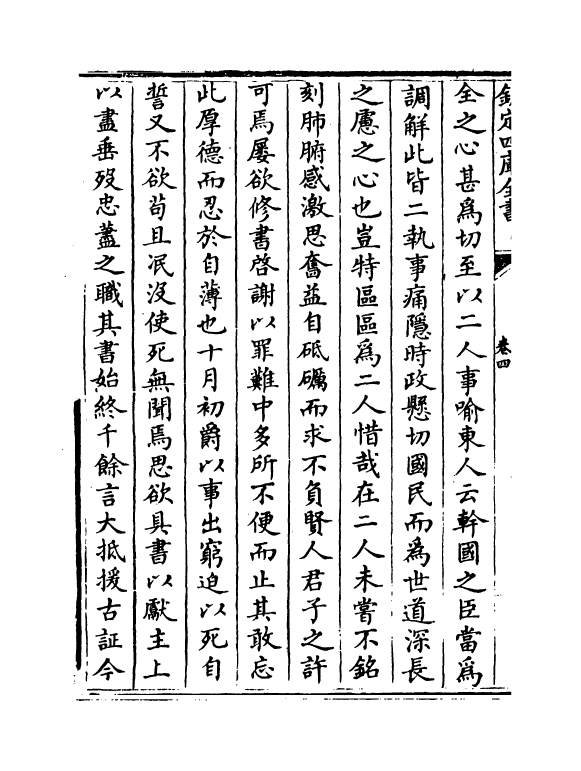 欽定四庫全書
卷四
全之心甚爲切至以二人事喻東人云幹國之臣當爲
調解此皆二執事痛隱時政懸切國民而爲世道深長
之慮之心也豈特區區爲二人惜哉在二人未嘗不銘
刻肺腑感激思奮益自砥礪而求不負賢人君子之許
可焉屢欲修書啓謝以罪難中多所不便而止其敢忘
此厚德而忍於自薄也十月初爵以事出窮迫以死自
誓又不欲茍且泯沒使死無聞焉思欲具書以獻主上
以盡垂歿忠藎之職其書始終千餘言大抵援古証今